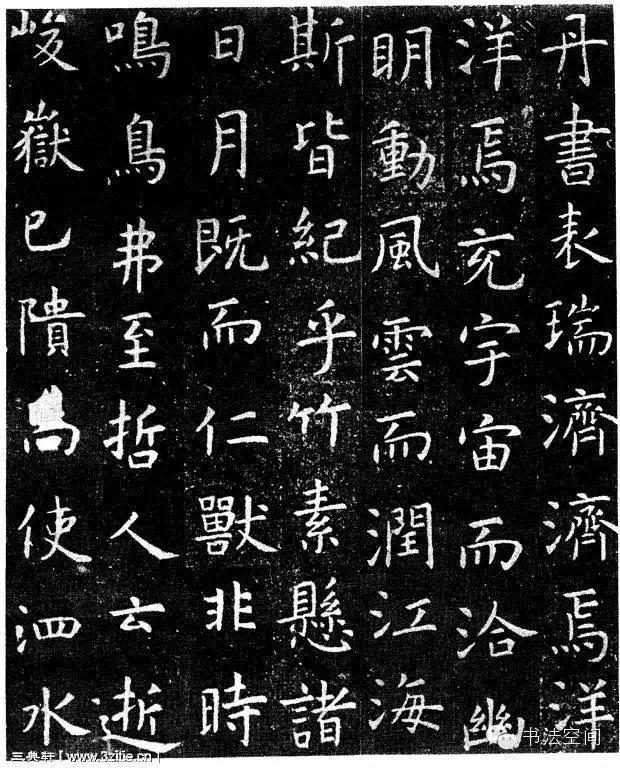 丹書表瑞濟濟焉洋
洋焉充宇宙而洽幽
明動風雲而潤江海
斯皆紀乎竹素懸諸
日月既而仁獸非時
鳴鳥弗至哲人云逝
峻嶽已隤尚使泗水
书法空间